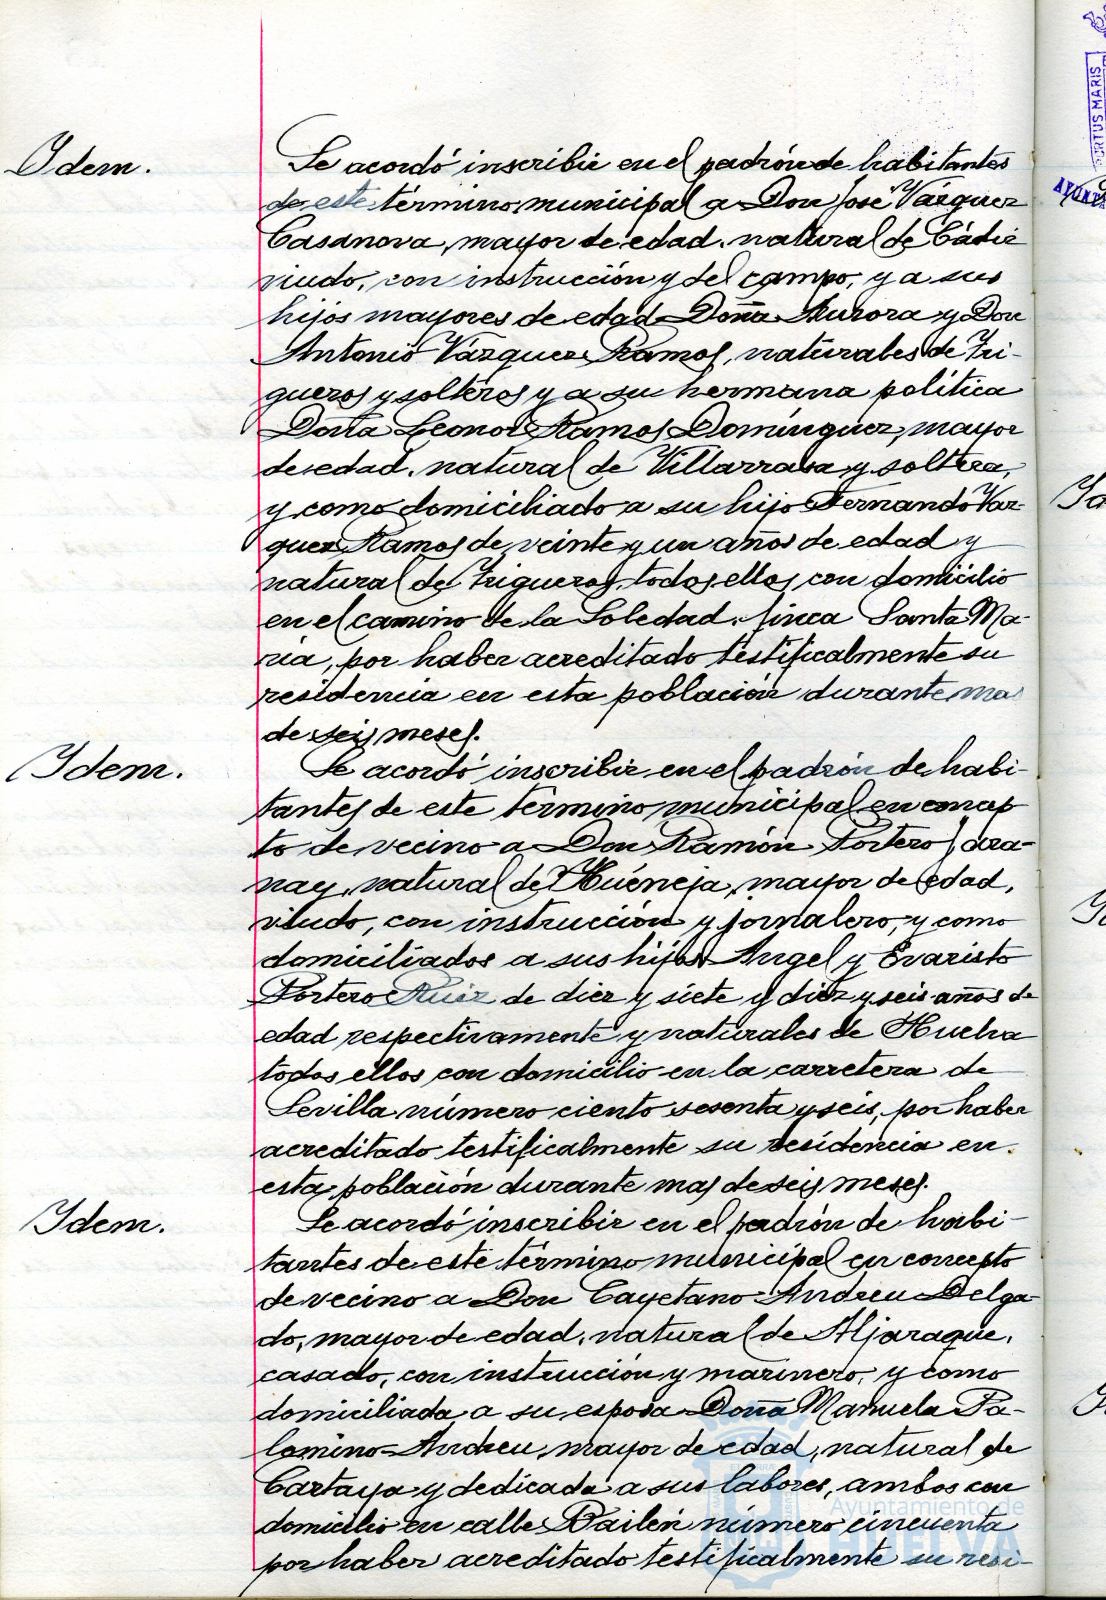 Idem.
Se acordó inscribir en el padrón de habitantes
de este término municipal a Don José Vázquez
Casanova, mayor de edad, natural de Cádiz
viudo, con instrucción y del campo, y a sus
hijos mayores de edad Doña Aurora y Don
Antonio Vázquez Ramos, naturales de Tri-
gueros y solteros y a su hermana política
Doña Leonor Ramos Domínguez, mayor
de edad, natural de Villarrasa y soltera,
y como domiciliado a su hijo Fernando Váz-
quez Ramos de veinte y un años de edad y
natural de Trigueros, todos ellos, con domicilio
en el camino de la Soledad, finca Santa Ma-
ría, por haber acreditado testificalmente su
residencia en esta población durante mas
de seis meses.
Idem.
Se acordó inscribir en el padrón de habi-
tantes de este término municipal en concep
to de vecino a Don Ramón Portero
nay, natural de Huéneja, mayor de edad,
viudo, con instrucción y jornalero, y como
domiciliados a sus hijos Angel y Evaristo
Portero Ruiz de diez y siete y diez y seis años de
edad respectivamente y naturales de Huelva
todos ellos con domicilio en la carretera de
Sevilla número ciento sesenta y seis, por haber
acreditado testificalmente su residencia en
esta población durante mas de seis meses.
Idem.
Se acordó inscribir en el padrón de habi-
tantes de este término municipal en concepto
de vecino a Don Cayetano Andreu Delga-
do, mayor de edad, natural de Aljaraque,
casado, con instrucción y marinero, y como
domiciliada a su esposa Doña Manuela Pa-
lomino Andreu, mayor de edad, natural de
Cartaya y dedicada a sus labores, ambos con
domicilio en calle Bailén número cincuenta
por haber acreditado testificalmente su resi-
PORTUS MARIS
Ayuntamiento de
HUELVA